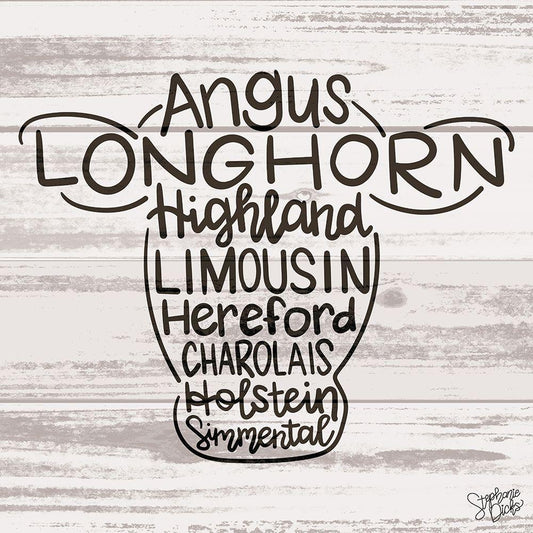 Angus
LONGHORN
Highland
LIMOUSIN
Hereford
CHAROLAIS
Holstein
Simmental
Stephanie
Dicks